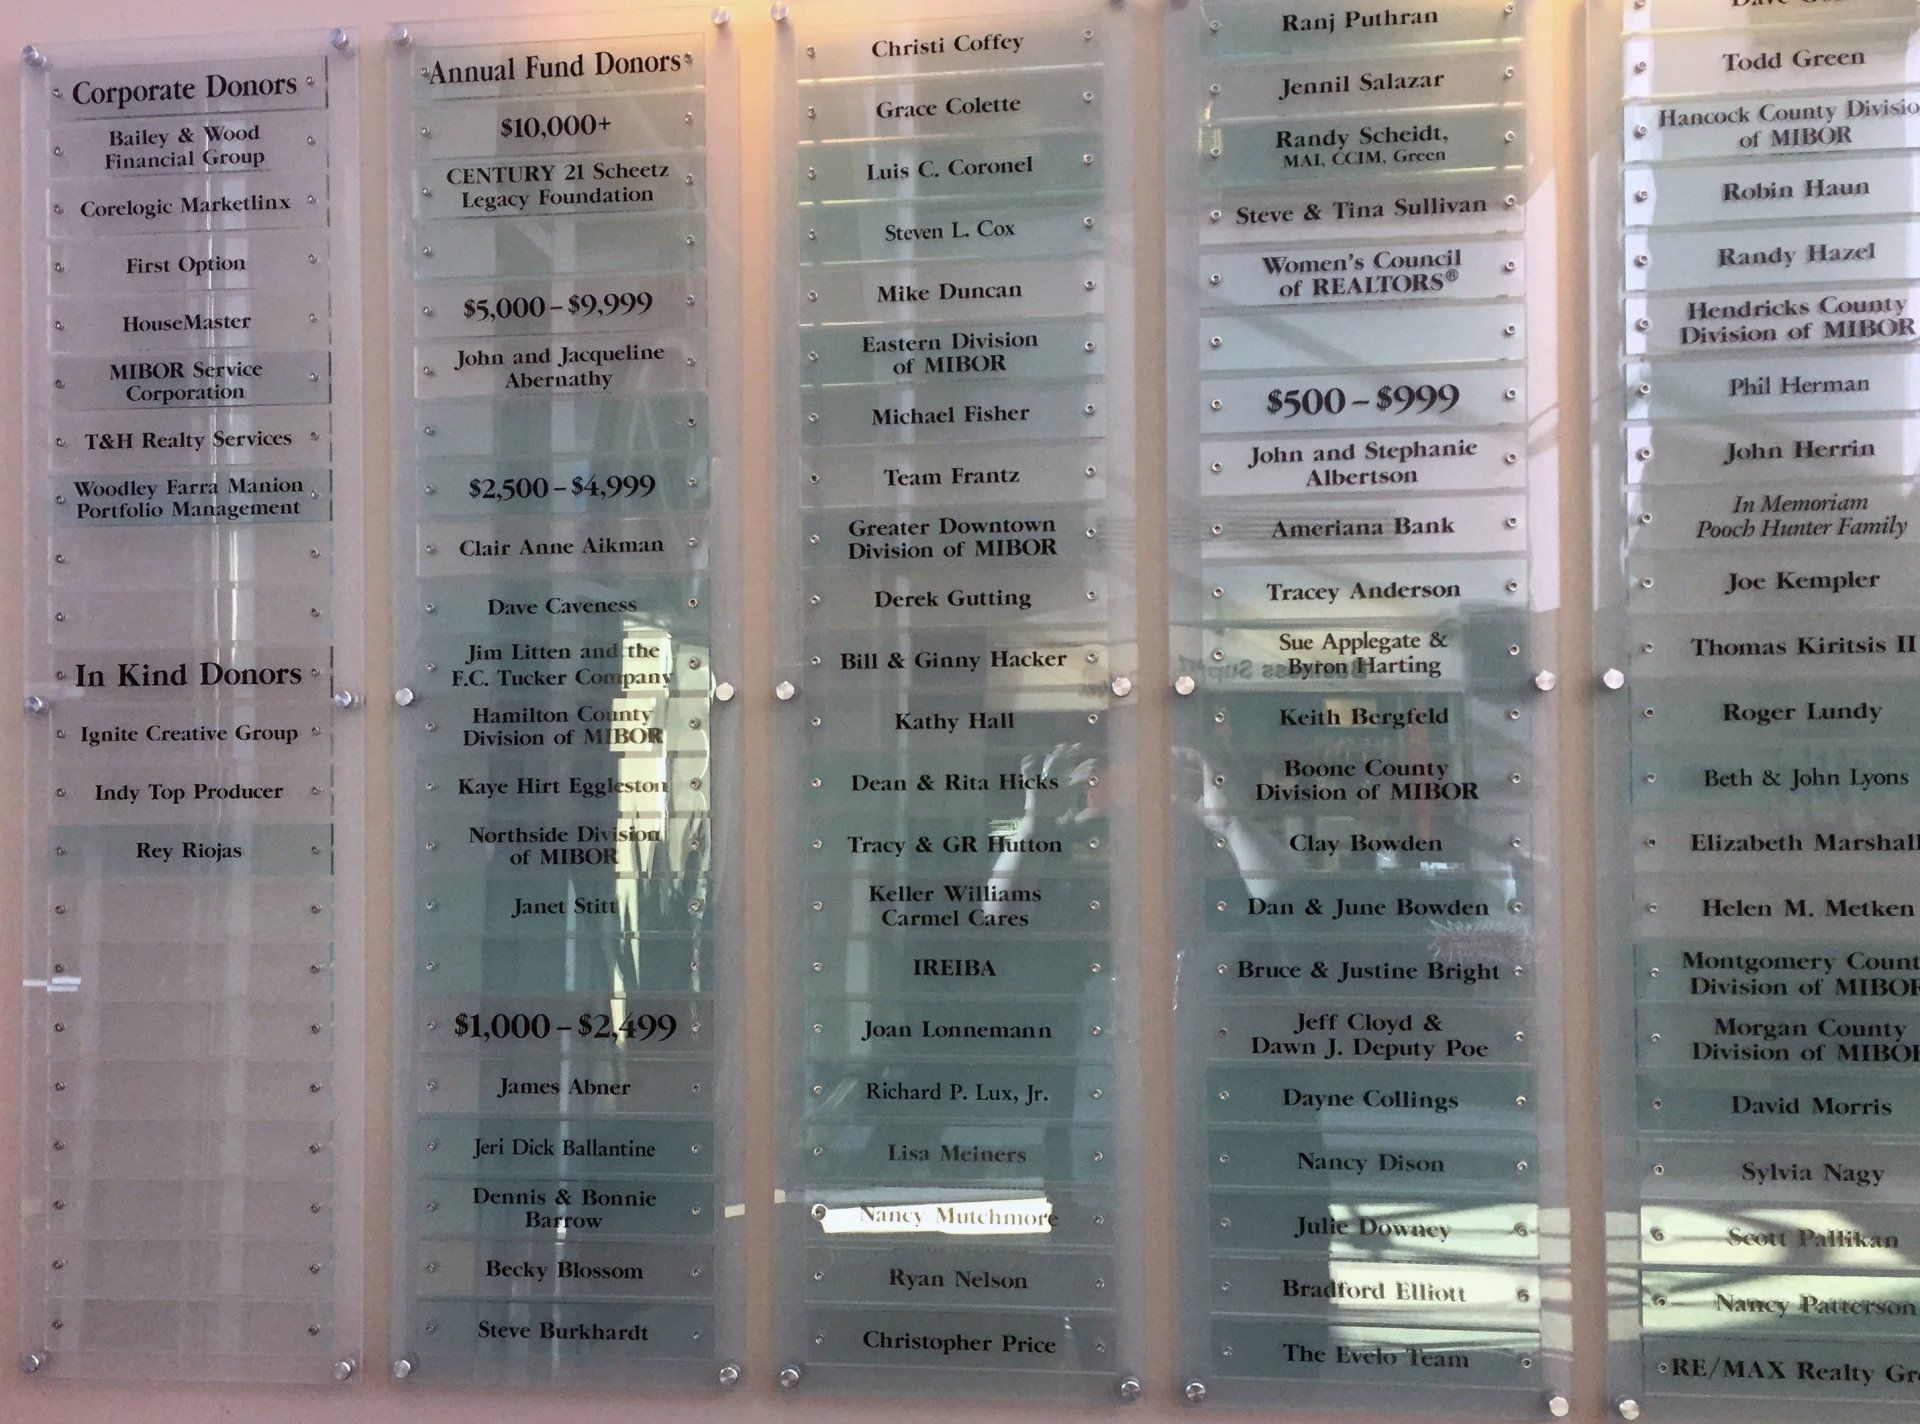 Corporate Donors
Bailey & Wood
Financial Group
Corelogic Marketlinx
First Option
HouseMaster
MIBOR Service
Corporation
T&H Realty Services
Woodley Farra Manion
Portfolio Management
In Kind Donors
Ignite Creative Group
Indy Top Producer
Rey Riojas
Annual Fund Donors
$10,000+
CENTURY 21 Scheetz
Legacy Foundation
$5,000 – $9,999
John and Jacqueline
Abernathy
$2,500 – $4,999
Clair Anne Aikman
Dave Caveness
Jim Litten and the
F.C. Tucker Company
Hamilton County
Division of MIBOR
Kaye Hirt Eggleston
Northside Division
of MIBOR
Janet Stitt
$1,000 – $2,499
James Abner
Jeri Dick Ballantine
Dennis & Bonnie
Barrow
Becky Blossom
Steve Burkhardt
Christi Coffey
Grace Colette
Luis C. Coronel
Steven L. Cox
Mike Duncan
Eastern Division
of MIBOR
Michael Fisher
Team Frantz
Greater Downtown
Division of MIBOR
Derek Gutting
Bill & Ginny Hacker
Kathy Hall
Dean & Rita Hicks
Tracy & GR Hutton
Keller Williams
Carmel Cares
IREIBA
Joan Lonnemann
Richard P. Lux, Jr.
Lisa Meiners
Nancy Mutchmore
Ryan Nelson
Christopher Price
Ranj Puthran
Jennil Salazar
Randy Scheidt,
MAI, CCIM, Green
Steve & Tina Sullivan
Women's Council
of REALTORS®
$500 – $999
John and Stephanie
Albertson
Ameriana Bank
Tracey Anderson
Sue Applegate &
Byron Harting
Keith Bergfeld
Boone County
Division of MIBOR
Clay Bowden
Dan & June Bowden
Bruce & Justine Bright
Jeff Cloyd &
Dawn J. Deputy Poe
Dayne Collings
Nancy Dison
Julie Downey
Bradford Elliott
The Evelo Team
Dave
Todd Green
Hancock County Divisio
of MIBOR
Robin Haun
Randy Hazel
Hendricks County
Division of MIBOR
Phil Herman
John Herrin
In Memoriam
Pooch Hunter Family
Joe Kempler
Thomas Kiritsis II
Roger Lundy
Beth & John Lyons
Elizabeth Marshall
Helen M. Metken
Montgomery Count
Division of MIBOR
Morgan County
Division of MIBOR
David Morris
Sylvia Nagy
Scott Pallikan
Nancy Patterson
RE/MAX Realty Gr